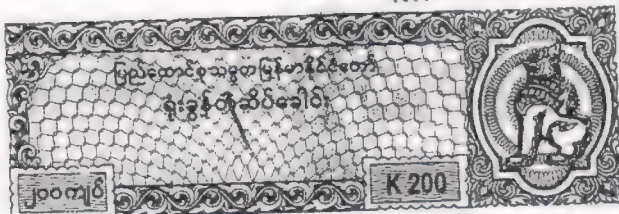 ပြည်ထောင်စုသမ္မတမြန်မာနိုင်ငံတော်
ရုံးခွန်တံဆိပ်ခေါင်း
၂၀၀ကျပ်
K 200